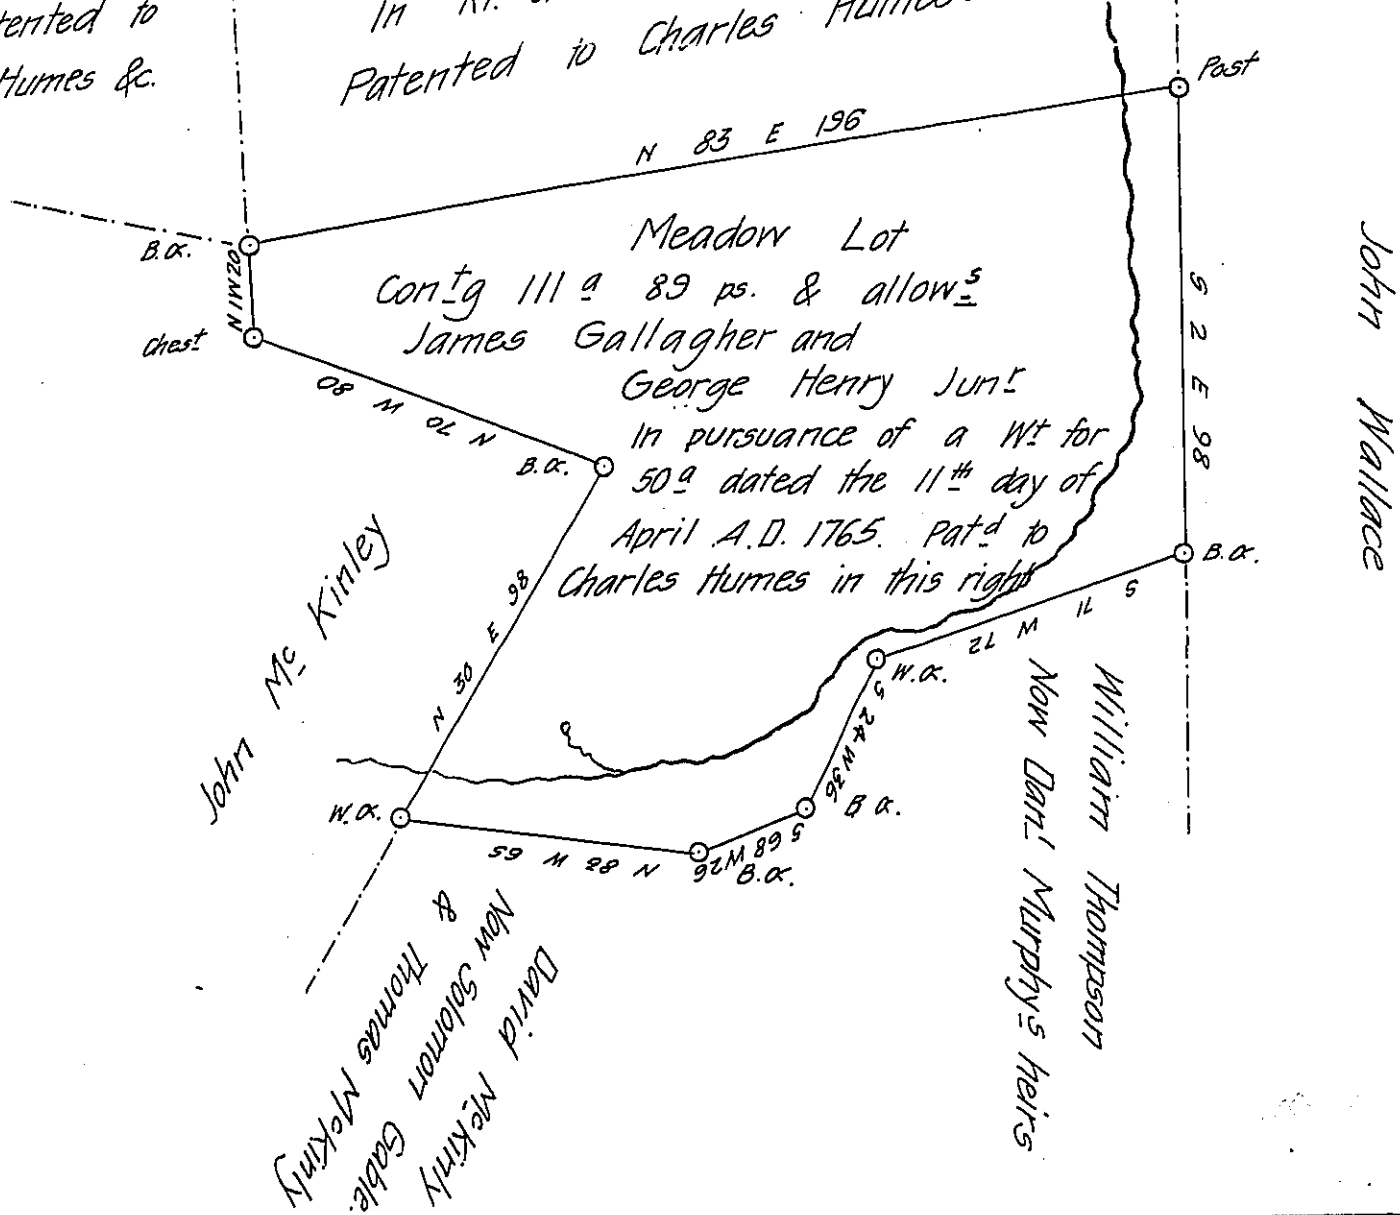 tented to
Humes &c.
In Rt.
Patented to Charles Humes
Post
N 83 E 196
B.O.
N1W20
Chest
Meadow Lot
Contg 111a 89 ps. & allows
James Gallagher and
George Henry Junr
In pursuance of a Wt for
50a dated the 11th day of
April A.D. 1765. Patd to
Charles Humes in this right
N 70 W 80
B.O.
S 2 E 98
John Wallace
B.O.
S 71 W 72
W.O.
S 24 W 36
B O.
S 68 W 26
B.O.
N 88 W 65
W.O.
N 30 E 98
John Mc Kinley
William Thompson
Now Danl Murphys heirs
David McKinly
Now Solomon Gable.
& Thomas McKinly